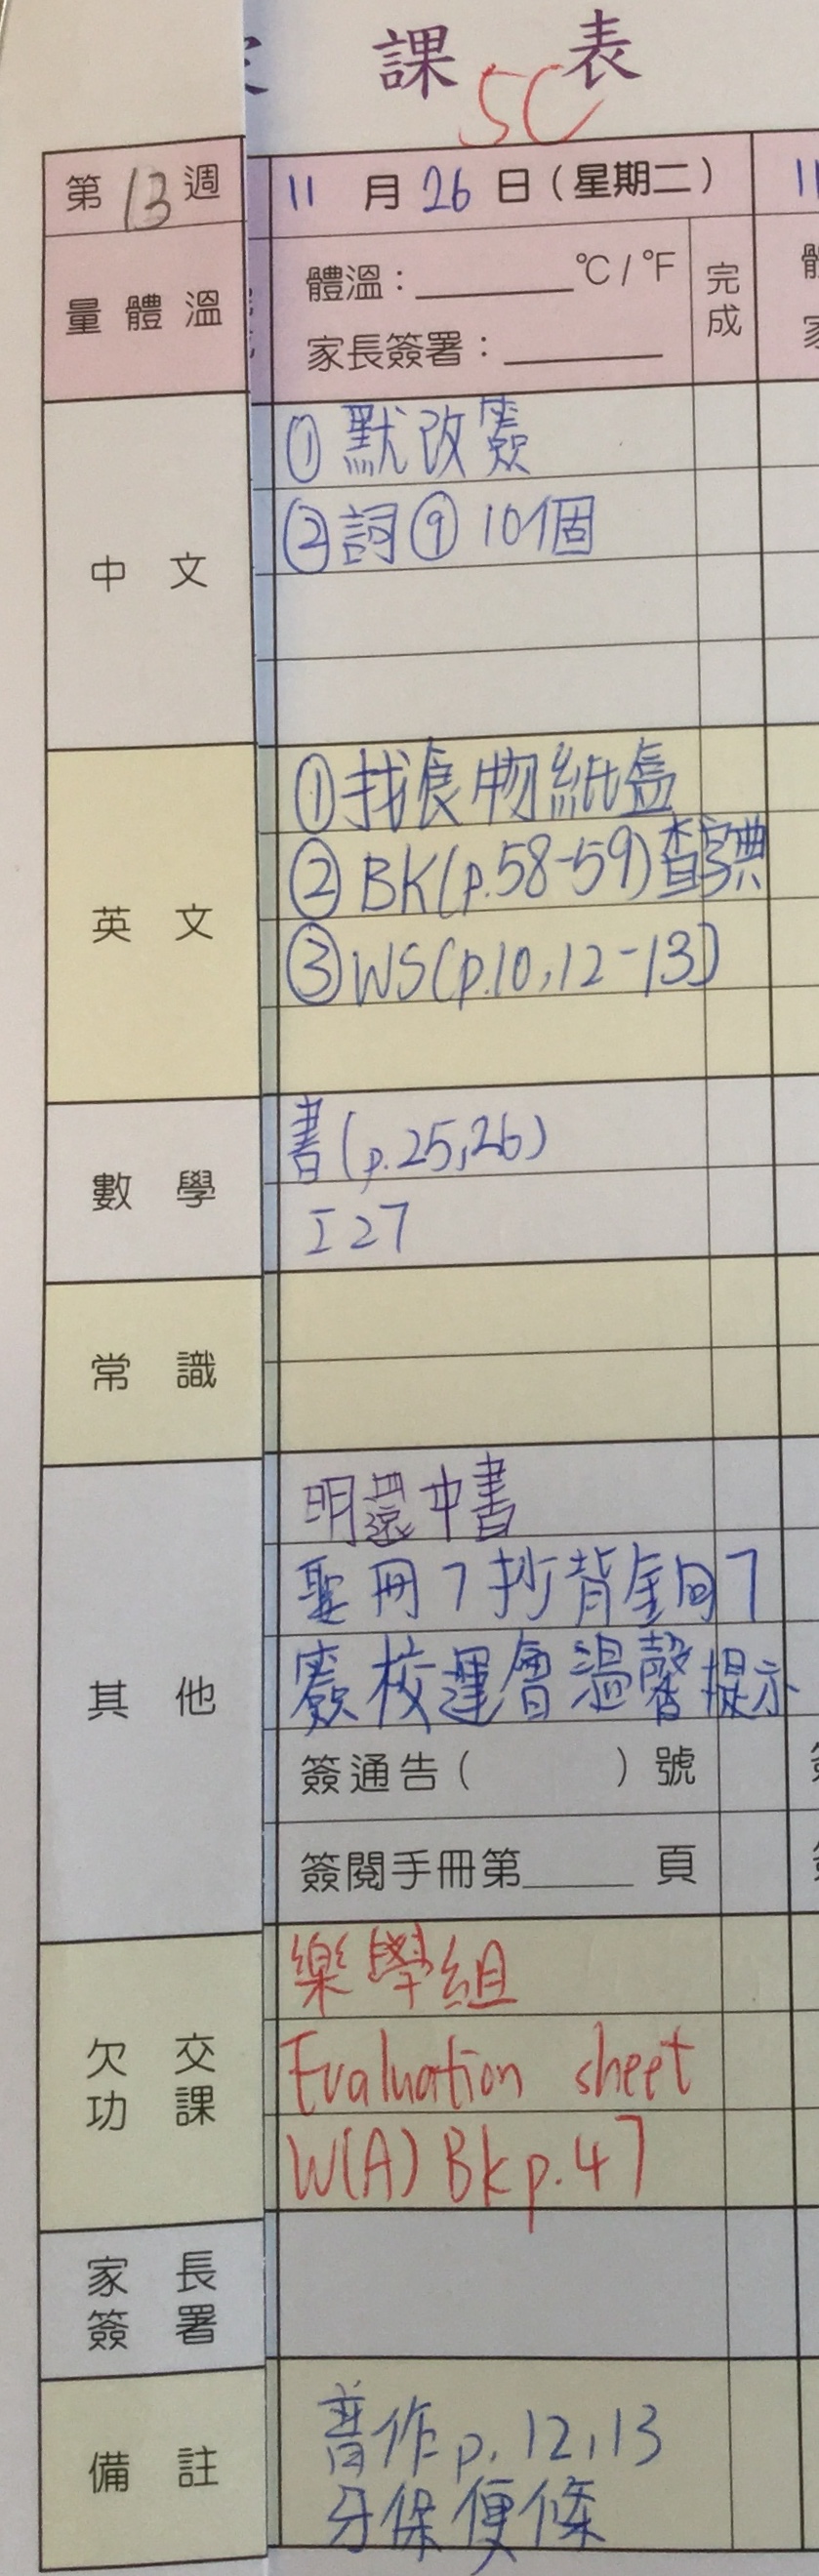 課 表
5C
第 13 週
11 月 26 日（星期二）
11
量 體 溫
體溫：______°C / °F
完成
家長簽署：______
中 文
① 默改簽
② 詞⑨ 10個
英 文
① 找食物紙盒
② BK(p.58-59) 查字典
③ WS(p.10,12-13)
數 學
書(p.25,26)
I27
常 識
其 他
明還中書
聖冊7抄背金句7
簽校運會溫馨提示
簽通告（ ）號
簽閱手冊第____頁
欠 交
功 課
樂學組
Evaluation sheet
W(A) Bk p.47
家 長
簽 署
備 註
普作 p. 12,13
牙保便條